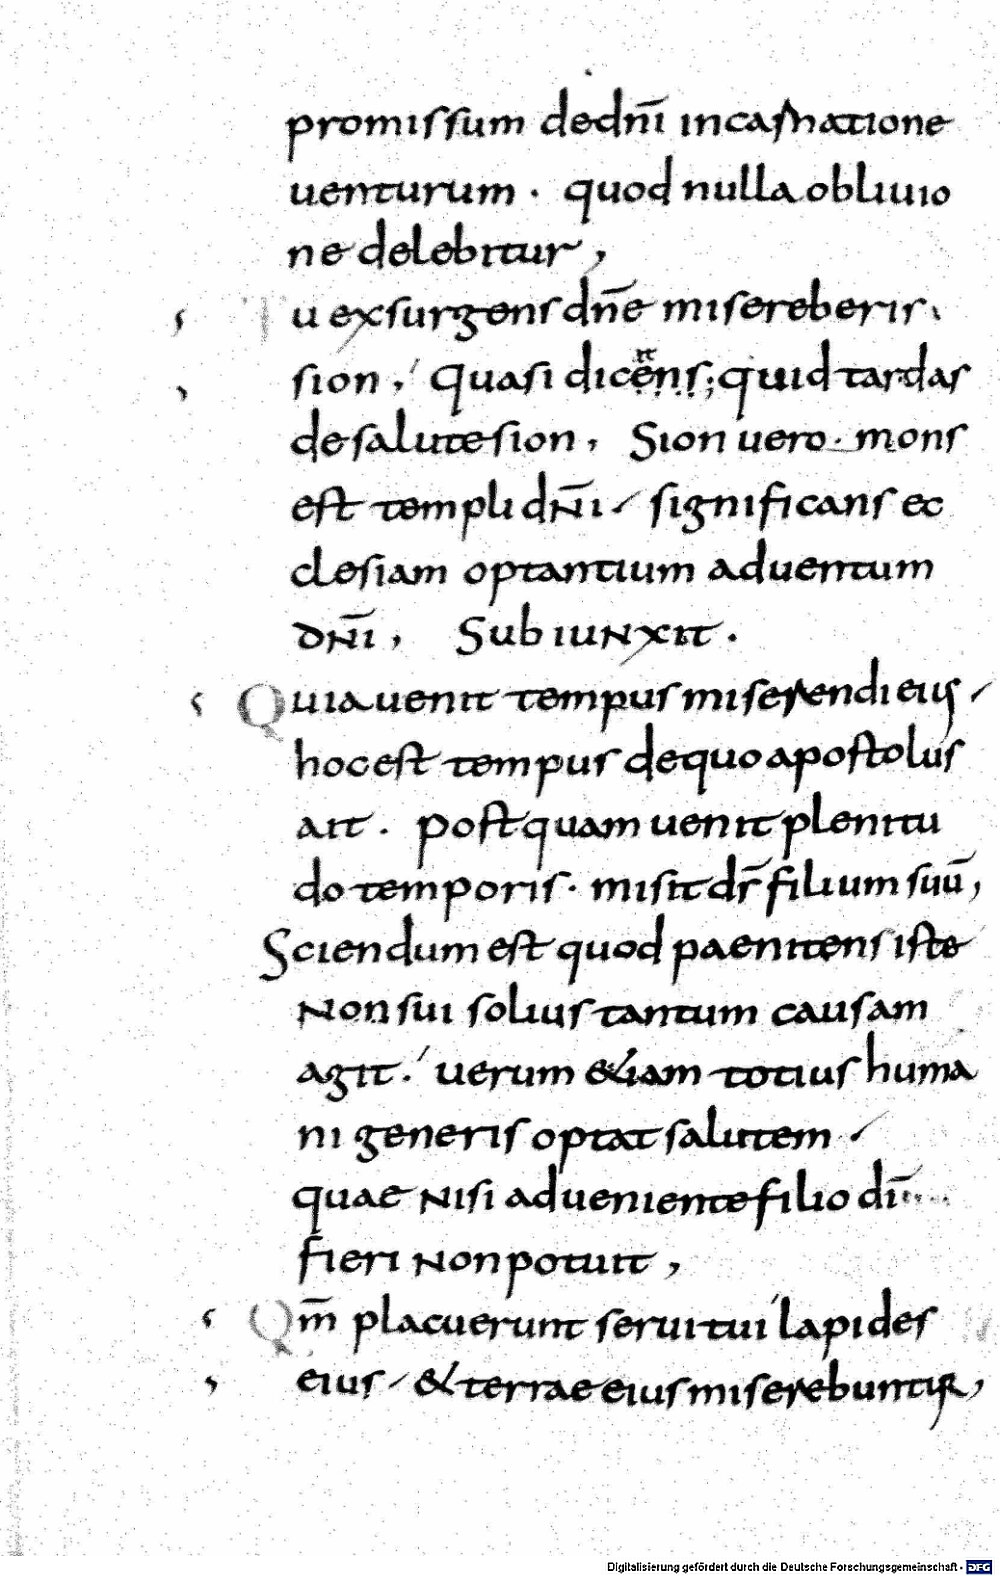 promissum dedni̅ incarnatione
uenturum · quod nulla obliuio
ne delebitur ,
Tu exsurgens dn̅e misereberis
sion , Quasi dicens ; quid tardas
de salute sion , Sion uero · mons
est templi dn̅i / significans ec
clesiam optantium aduentum
dn̅i , Subiunxit .
Quia uenit tempus miserendi eius /
hoc est tempus de quo apostolus
ait . postquam uenit plenitu
do temporis · misit ds̅ filium suu̅ ,
Sciendum est quod paenitens iste
Non sui solius tantum causam
agit . uerum &iam totius huma
ni generis optat salutem /
quae Nisi adueniente filio di̅
fieri Non potuit ,
Qm̅ placuerunt seruitui lapides
eius / & terrae eius miserebuntur ,
Digitalisierung gefördert durch die Deutsche Forschungsgemeinschaft - DFG